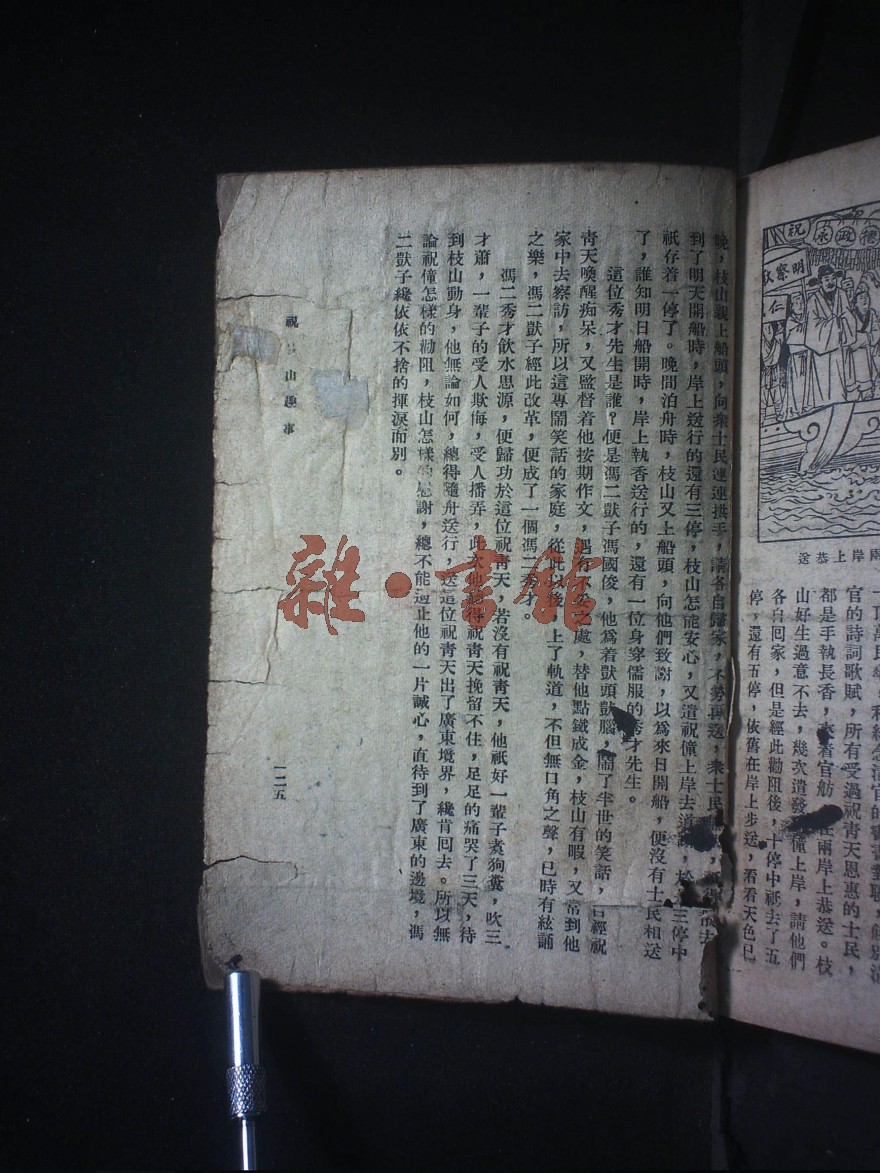 祝
永政德
明察
仁
兩岸上恭送
官的詩詞歌賦，所有受過祝青天恩惠的士民，
都是手執長香，
官舫
在兩岸上恭送。枝
山好生過意不去，幾次遣發
僮上岸，請他們
各自回家，但是經此勸阻後，十停中祇去了五
停，還有五停，依舊在岸上步送，看看天色已
晚，枝山親上船頭，向衆士民連連拱手，請各自歸家，不勞再送，衆士民
到了明天開船時，岸上送行的還有三停，枝山怎能安心，又遣祝僮上岸去道謝，於是三停中
祇存着一停了。晚間泊舟時，枝山又上船頭，向他們致謝，以爲來日開船，便沒有士民相送
了，誰知明日船開時，岸上執香送行的，還有一位身穿儒服的秀才先生。
這位秀才先生是誰？便是馮二獃子馮國俊，他爲着獃頭獃腦，鬧了半世的笑話，
經祝
青天喚醒痴呆，又監督着他按期作文，遇有不妥之處，替他點鐵成金，枝山有暇，又常到他
家中去察訪，所以這專鬧笑話的家庭，從此以後，上了軌道，不但無口角之聲，已時有絃誦
之樂，馮二獃子經此改革，便成了一個馮二秀才。
馮二秀才飲水思源，便歸功於這位祝青天，若沒有祝青天，他祇好一輩子煮狗糞，吹三
才蕭，一輩子的受人欺侮，受人播弄，此次他
得祝青天挽留不住，足足的痛哭了三天，待
到枝山動身，他無論如何，總得隨舟送行，送這位祝青天出了廣東境界，纔肯回去。所以無
論祝僮怎樣的勸阻，枝山怎樣的慰謝，總不能遏止他的一片誠心，直待到了廣東的邊境，馮
二獃子纔依依不捨的揮淚而別。
祝
山趣事
一二五
雜·書館